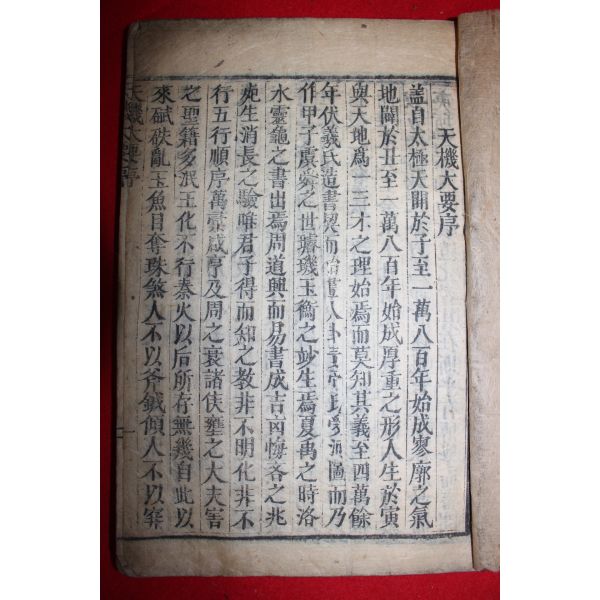 天機大要序
盖自太極天開於子至一萬八百年始成寥廓之氣
地闢於丑至一萬八百年始成厚重之形人生於寅
與天地爲一三才之理始焉而莫知其義至四萬餘
年伏羲氏造書契而始畫八卦帝氏受河圖而乃
作甲子虞舜之世璿璣玉衡之妙生焉夏禹之時洛
水靈龜之書出焉周道興而易書成吉凶悔吝之兆
死生消長之驗唯君子得而知之敎非不明化非不
行五行順序萬彙咸亨及周之衰諸侯壅之大夫害
之聖籍多泯王化不行秦火以后所存無幾自此以
來碔砆亂玉魚目奪珠煞人不以斧鉞傾人不以穽
天機大要序